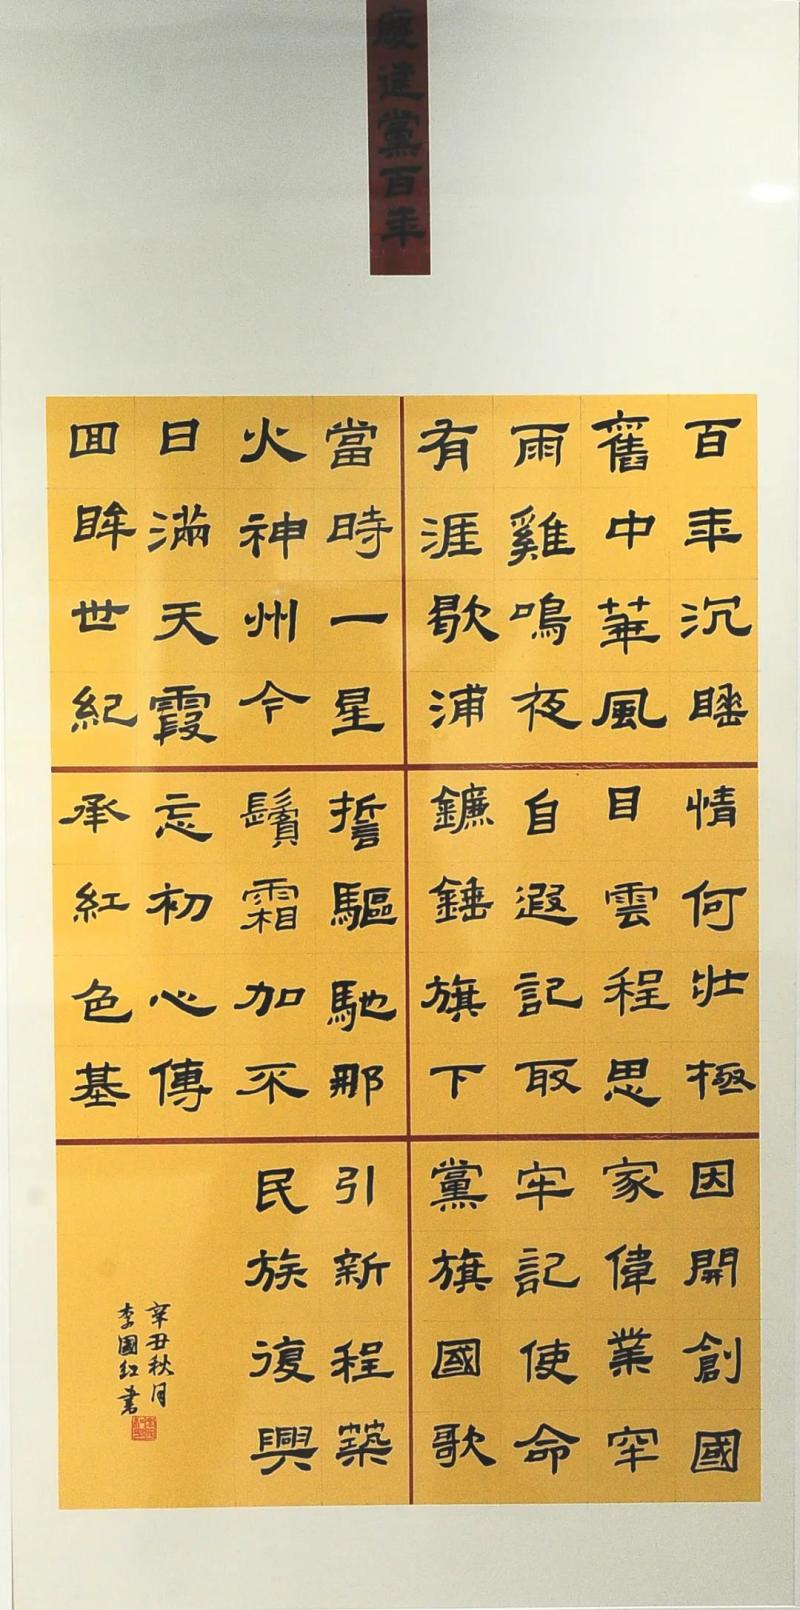 慶建黨百年
百年沉睡
舊中華風
雨雞鳴夜
有涯歇浦
當時一星
火神州今
日滿天霞
回眸世紀
情何壯極
目雲程思
自遐記取
鐮錘旗下
誓驅馳那
鬢霜加不
忘初心傳
承紅色基
因開創國
家偉業牢
牢記使命
黨旗國歌
引新程築
民族復興
辛丑秋月
李國紅書